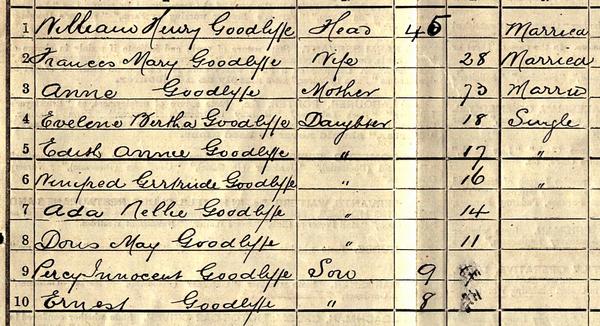 1 William Henry Goodlyffe Head 45 Married
2 Frances Mary Goodlyffe Wife 28 Married
3 Anne Goodlyffe Mother 73 Married
4 Evelene Bertha Goodlyffe Daughter 18 Single
5 Edith Annie Goodlyffe " 17 "
6 Winifred Gertrude Goodlyffe " 16 "
7 Ada Nellie Goodlyffe " 14
8 Doris May Goodlyffe " 11
9 Percy Innocent Goodlyffe Son 9
10 Ernest Goodlyffe " 8